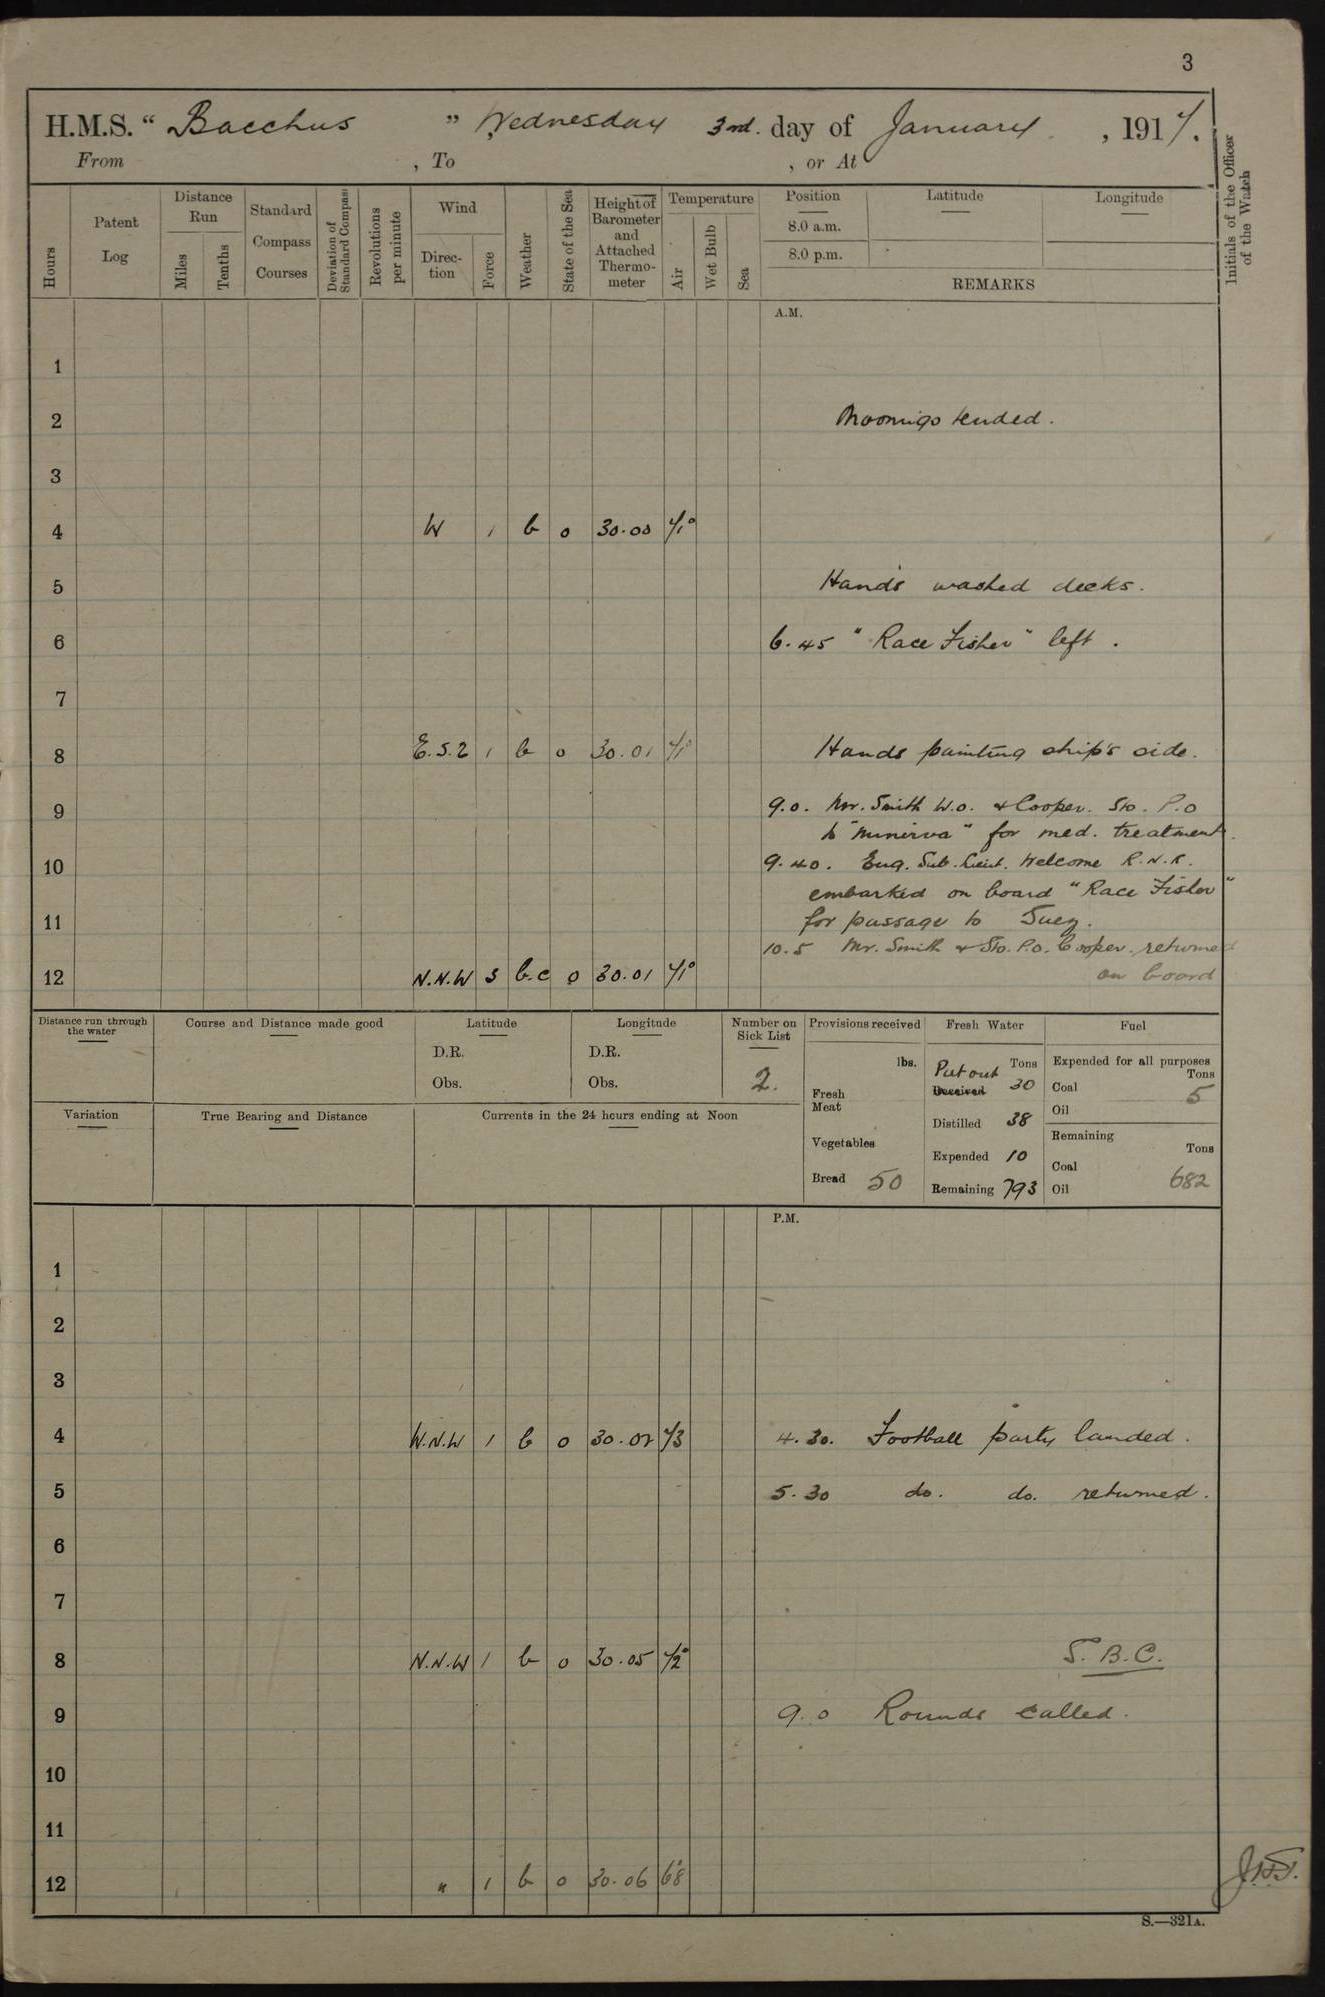 3
H.M.S. “ Bacchus ” Wednesday 3rd. day of January , 1917.
From , To , or At
Hours
Patent Log
Distance Run
Miles
Tenths
Standard Compass Courses
Deviation of Standard Compass
Revolutions per minute
Wind
Direction
Force
Weather
State of the Sea
Height of Barometer and Attached Thermometer
Temperature
Air
Wet Bulb
Sea
Position
8.0 a.m.
8.0 p.m.
Latitude
Longitude
REMARKS
Initials of the Officer of the Watch
A.M.
1
2 Moorings tended.
3
4 W 1 b 0 30.00 71°
5 Hands washed decks.
6 6.45 "Race Fisher" left.
7
8 E.S.E 1 b 0 30.01 71° Hands painting ship's side.
9 9.0. Mr. Smith W.O. & Cooper. Sto. P.O
to "Minerva" for med. treatment.
10 9.40. Eng. Sub. Lieut. Welcome R.N.R.
embarked on board "Race Fisher"
11 for passage to Suez.
10.5 Mr. Smith & Sto. P.O. Cooper. returned
12 N.N.W 3 b.c 0 30.01 71° on board
Distance run through the water
Course and Distance made good
Latitude
D.R.
Obs.
Longitude
D.R.
Obs.
Number on Sick List
2.
Provisions received
lbs.
Fresh Meat
Vegetables
Bread 50
Fresh Water
Tons
Put out
Received 30
Distilled 38
Expended 10
Remaining 793
Fuel
Expended for all purposes
Tons
Coal 5
Oil
Remaining
Tons
Coal
Oil 682
Variation
True Bearing and Distance
Currents in the 24 hours ending at Noon
P.M.
1
2
3
4 W.N.W 1 b 0 30.02 73 4.30. Football party landed.
5 5.30 do. do. returned.
6
7
8 N.N.W 1 b 0 30.05 72° S.B.C.
9 9.0 Rounds called.
10
11
12 " 1 b 0 30.06 68°
S.—321A.